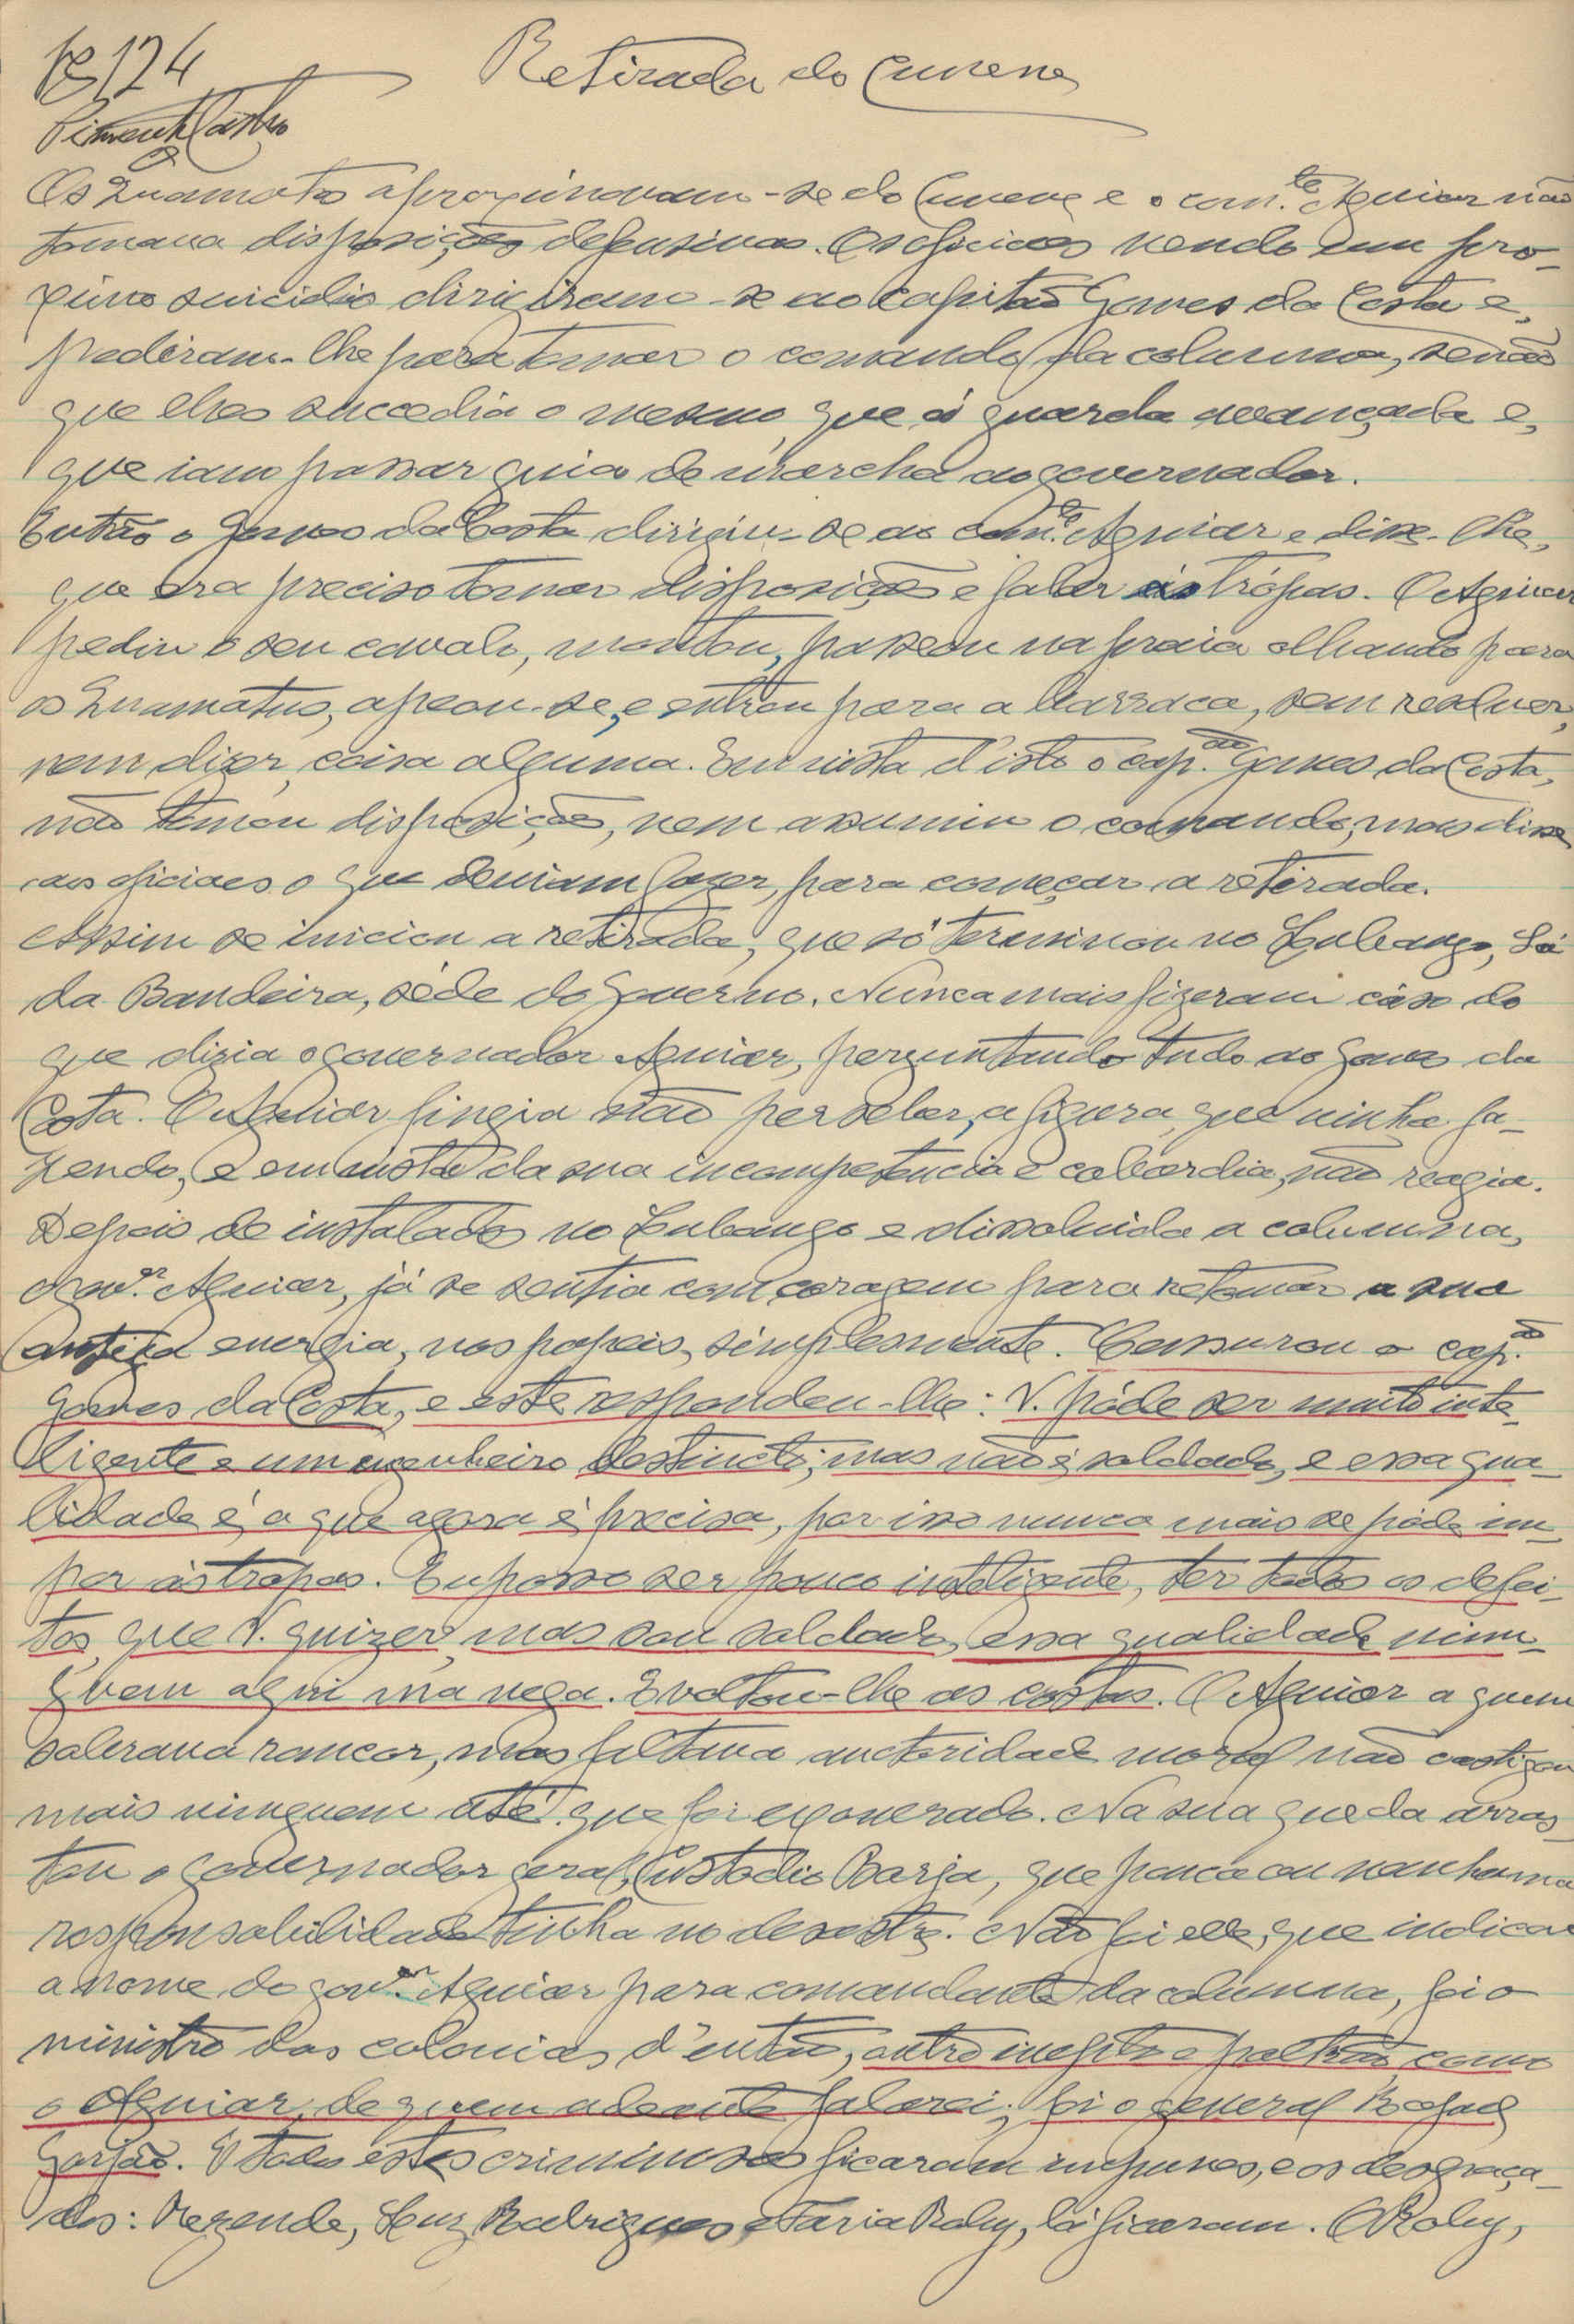 124
Retirada do Cunene
Pimenta Castro
Os Quamatos aproximavam-se do Cunene e o com.te Aguiar não
tomava disposições defensivas. Os oficiaes vendo um pro-
ximo suicidio dirigiram-se ao capitão Gomes da Costa e,
pediram-lhe para tomar o comando da columna, senão
que elhes succedia o mesmo, que á guarda avançada e,
que iam passar guia de marcha ao governador.
Então o Gomes da Costa dirigiu-se ao com.te Aguiar e disse-lhe,
que era preciso tomar disposições e falar ás trópas. O Aguiar
pediu o seu cavalo, montou, passeou na praia olhando para
os Quamatus, apeou-se, e entrou para a barraca, sem resolver,
nem dizer, coisa alguma. Em vista d'isto o cap.ão Gomes da Costa,
não tomou disposições, nem assumiu o comando, mas disse
aos oficiaes o que deviam fazer, para começar a retirada.
Assim se iniciou a retirada, que só terminou no Lubango, Sá
da Bandeira, séde do Governo. Nunca mais fizeram cáso do
que dizia o governador Aguiar, perguntando tudo ao Gomes da
Costa. O Aguiar fingia não perceber, a figura, que vinha fa-
zendo, e em vista da sua incompetencia e cobardia, não reagia.
Depois de instalados no Lubango e dissolvida a columna,
o gov.or Aguiar, já se sentia com coragem para retomar a sua
antiga energia, nos papeis, simplesmente. Censurou o cap.ão
Gomes da Costa, e este respondeu-lhe: V. póde ser muito inte-
ligente e um engenheiro destincto, mas não é soldado, e essa qua-
lidade é, a que agora é precisa, por isso nunca mais se póde im-
por ás tropas. Eu posso ser pouco inteligente, ter todos os defei-
tos, que V. quizer, mas sou soldado, essa qualidade nin-
guem aqui ma nega. E voltou-lhe as costas. O Aguiar a quem
sobrava rancor, mas faltava auctoridade moral não castigou
mais ninguem até que foi exonerado. Na sua queda arras-
tou o governador geral, Custodio Borja, que pouca ou nenhuma
responsabilidade tinha no desastre. Não foi elle, que indicou
o nome do gov.or Aguiar para comandante da columna, foi o
ministro das colonias d'então, outro inepto e poltrão, como
o Aguiar, de quem adeante falarei; foi o general Rafael
Gorjão. E todos estes criminosos ficaram impunes, e os desgraça-
dos: Rezende, Luz Rodrigues, e Faria Roby, lá ficaram. O Roby,